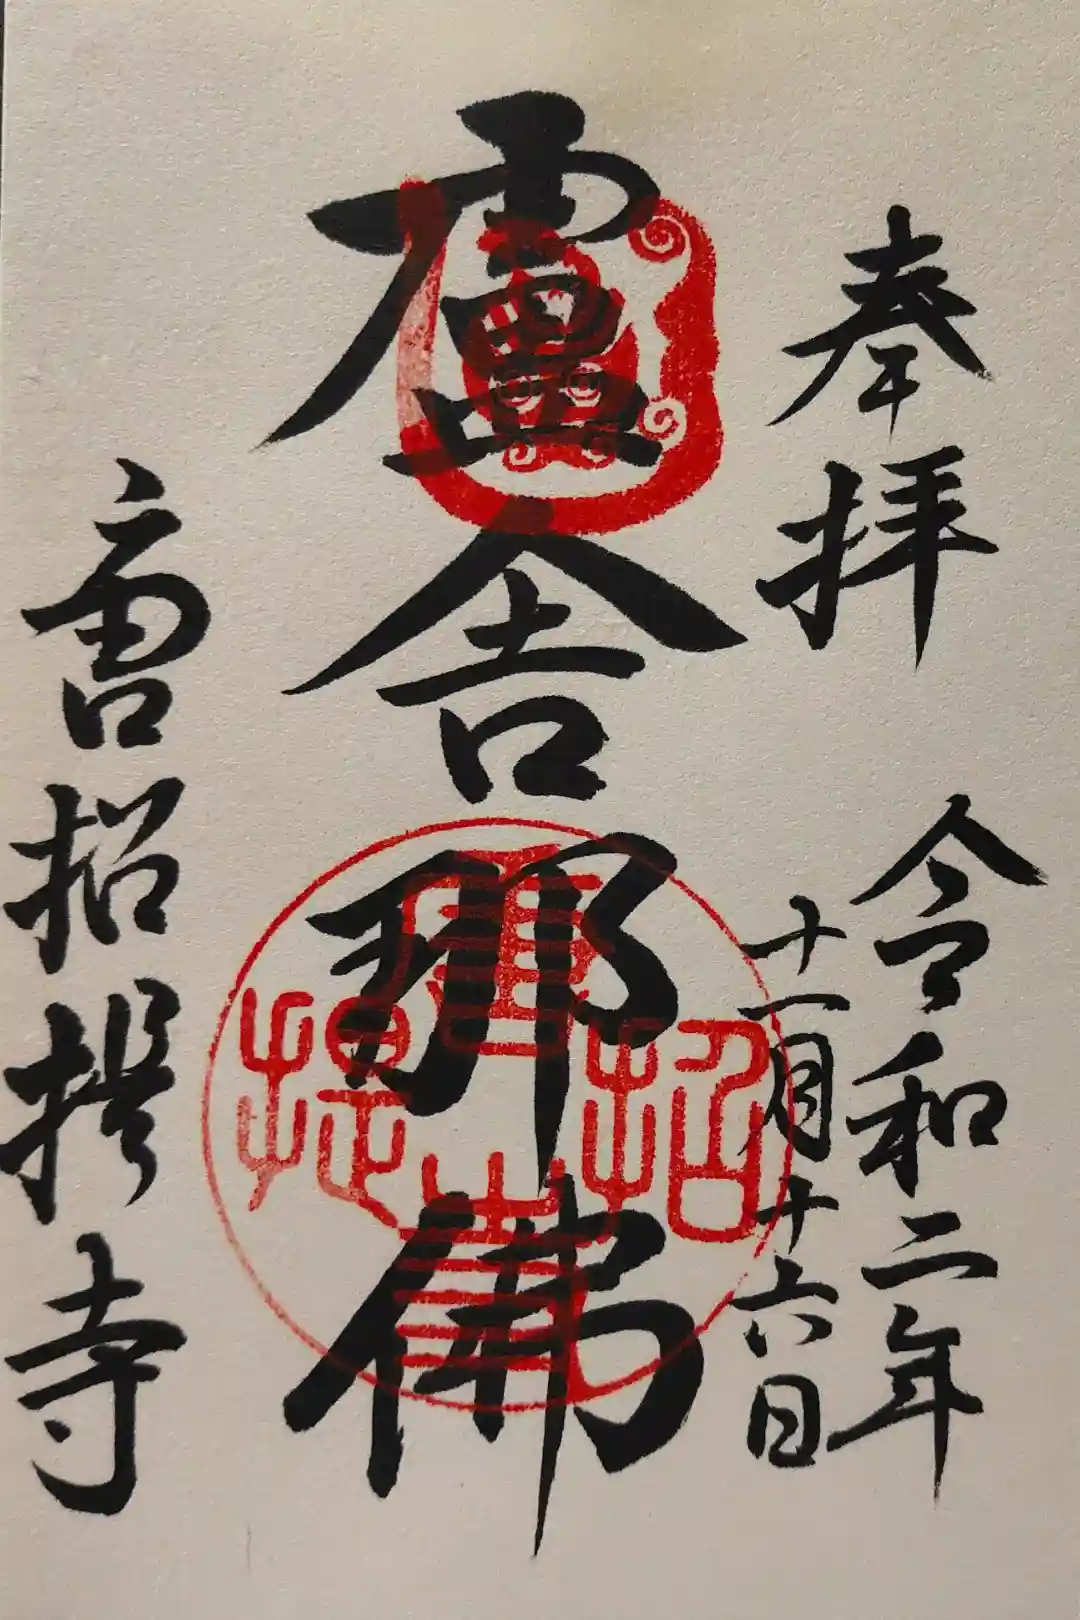 奉拝
令和二年
十一月十六日
盧舎那佛
唐招提寺
唐招提寺